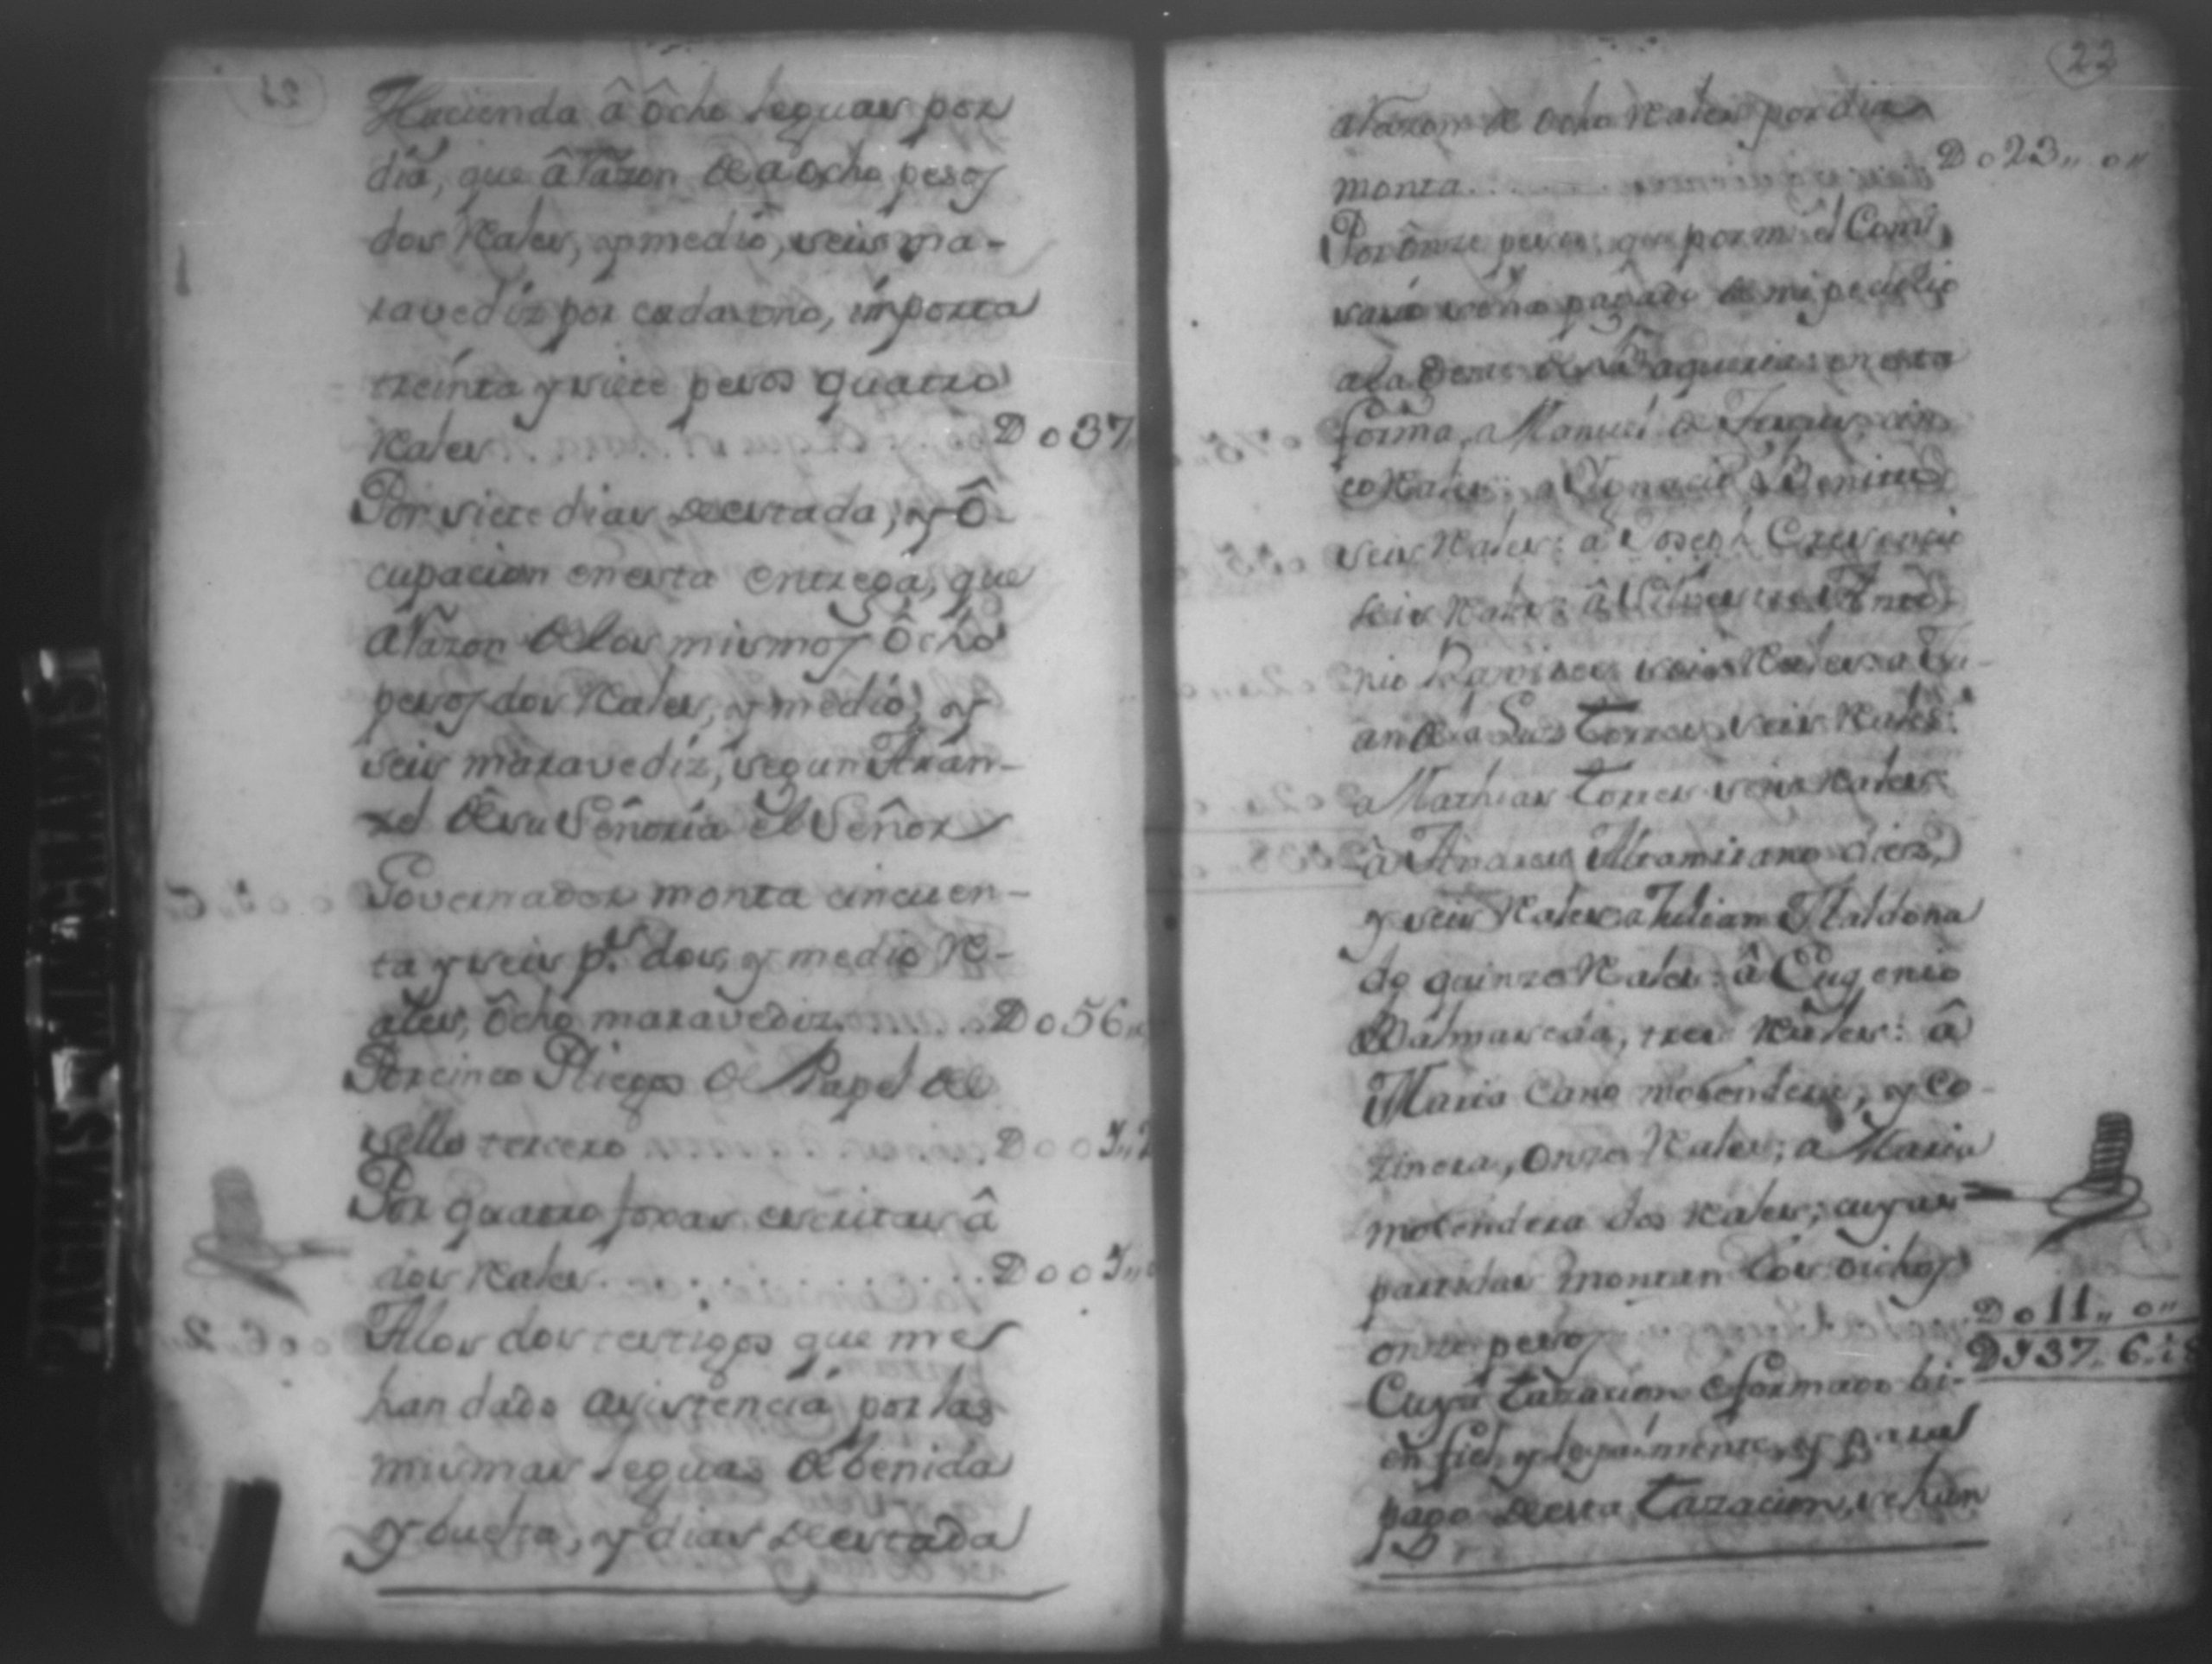 Hacienda â ôcho leguas por
dia, que â razon de a ocho pesos
dos Reales, y medio, seis ma-
ravediz por cada uno, importa
treinta y siete pesos quatro
Reales . . . D o 37
Por siete dias de estada, y ô-
cupacion en esta entrega, que
a razon de los mismos ôcho
pesos dos Reales, y medio, y
seis maravediz, segun Aran-
zel de su Señoria el Señor
Governador monta cincuen-
ta y seis p.s dos, y medio Re-
ales, ôcho maravediz . . . . . . . D o 56,,
Por cinco Pliegos de Papel del
sello tercero . . . . . . D o o 1,, 2
Por quatro foxas escritas â
dos Reales . . . . . . . . . . . . . . D o o 1,,
A los dos testigos que me
han dado asistencia por las
mismas leguas de benida
y buelta, y dias de estada
22
a razon de ocho Reales por dia
monta . . . D o 23,, o,,
Por onze pesos que por mi el Comi
sario se han pagado de mi peculio
a la
forma, a Manuel de cin
co Reales: a Ygnacio Benites
seis Reales: a Joseph Cresencio
seis Reales: â Anto-
nio Ramires seis Reales: a Ju-
an de la Luz Torres seis Reales:
a Mathias Torres seis Reales
â Andres Altamirano diez,
y seis Reales a Julian Maldona
do quinze Reales: â Eugenio
Balmaseda, tres Reales: â
Maria Cano molendera, y co-
zinera, onze Reales; a Maria
molendera dos Reales; cuyas
partidas montan los dichos
onze pesos . . . D o 11,, o,,
D 137,, 6,,
Cuya tazacion he formado bi-
en fiel, y legalmente, y para el
pago de esta tazacion, se han